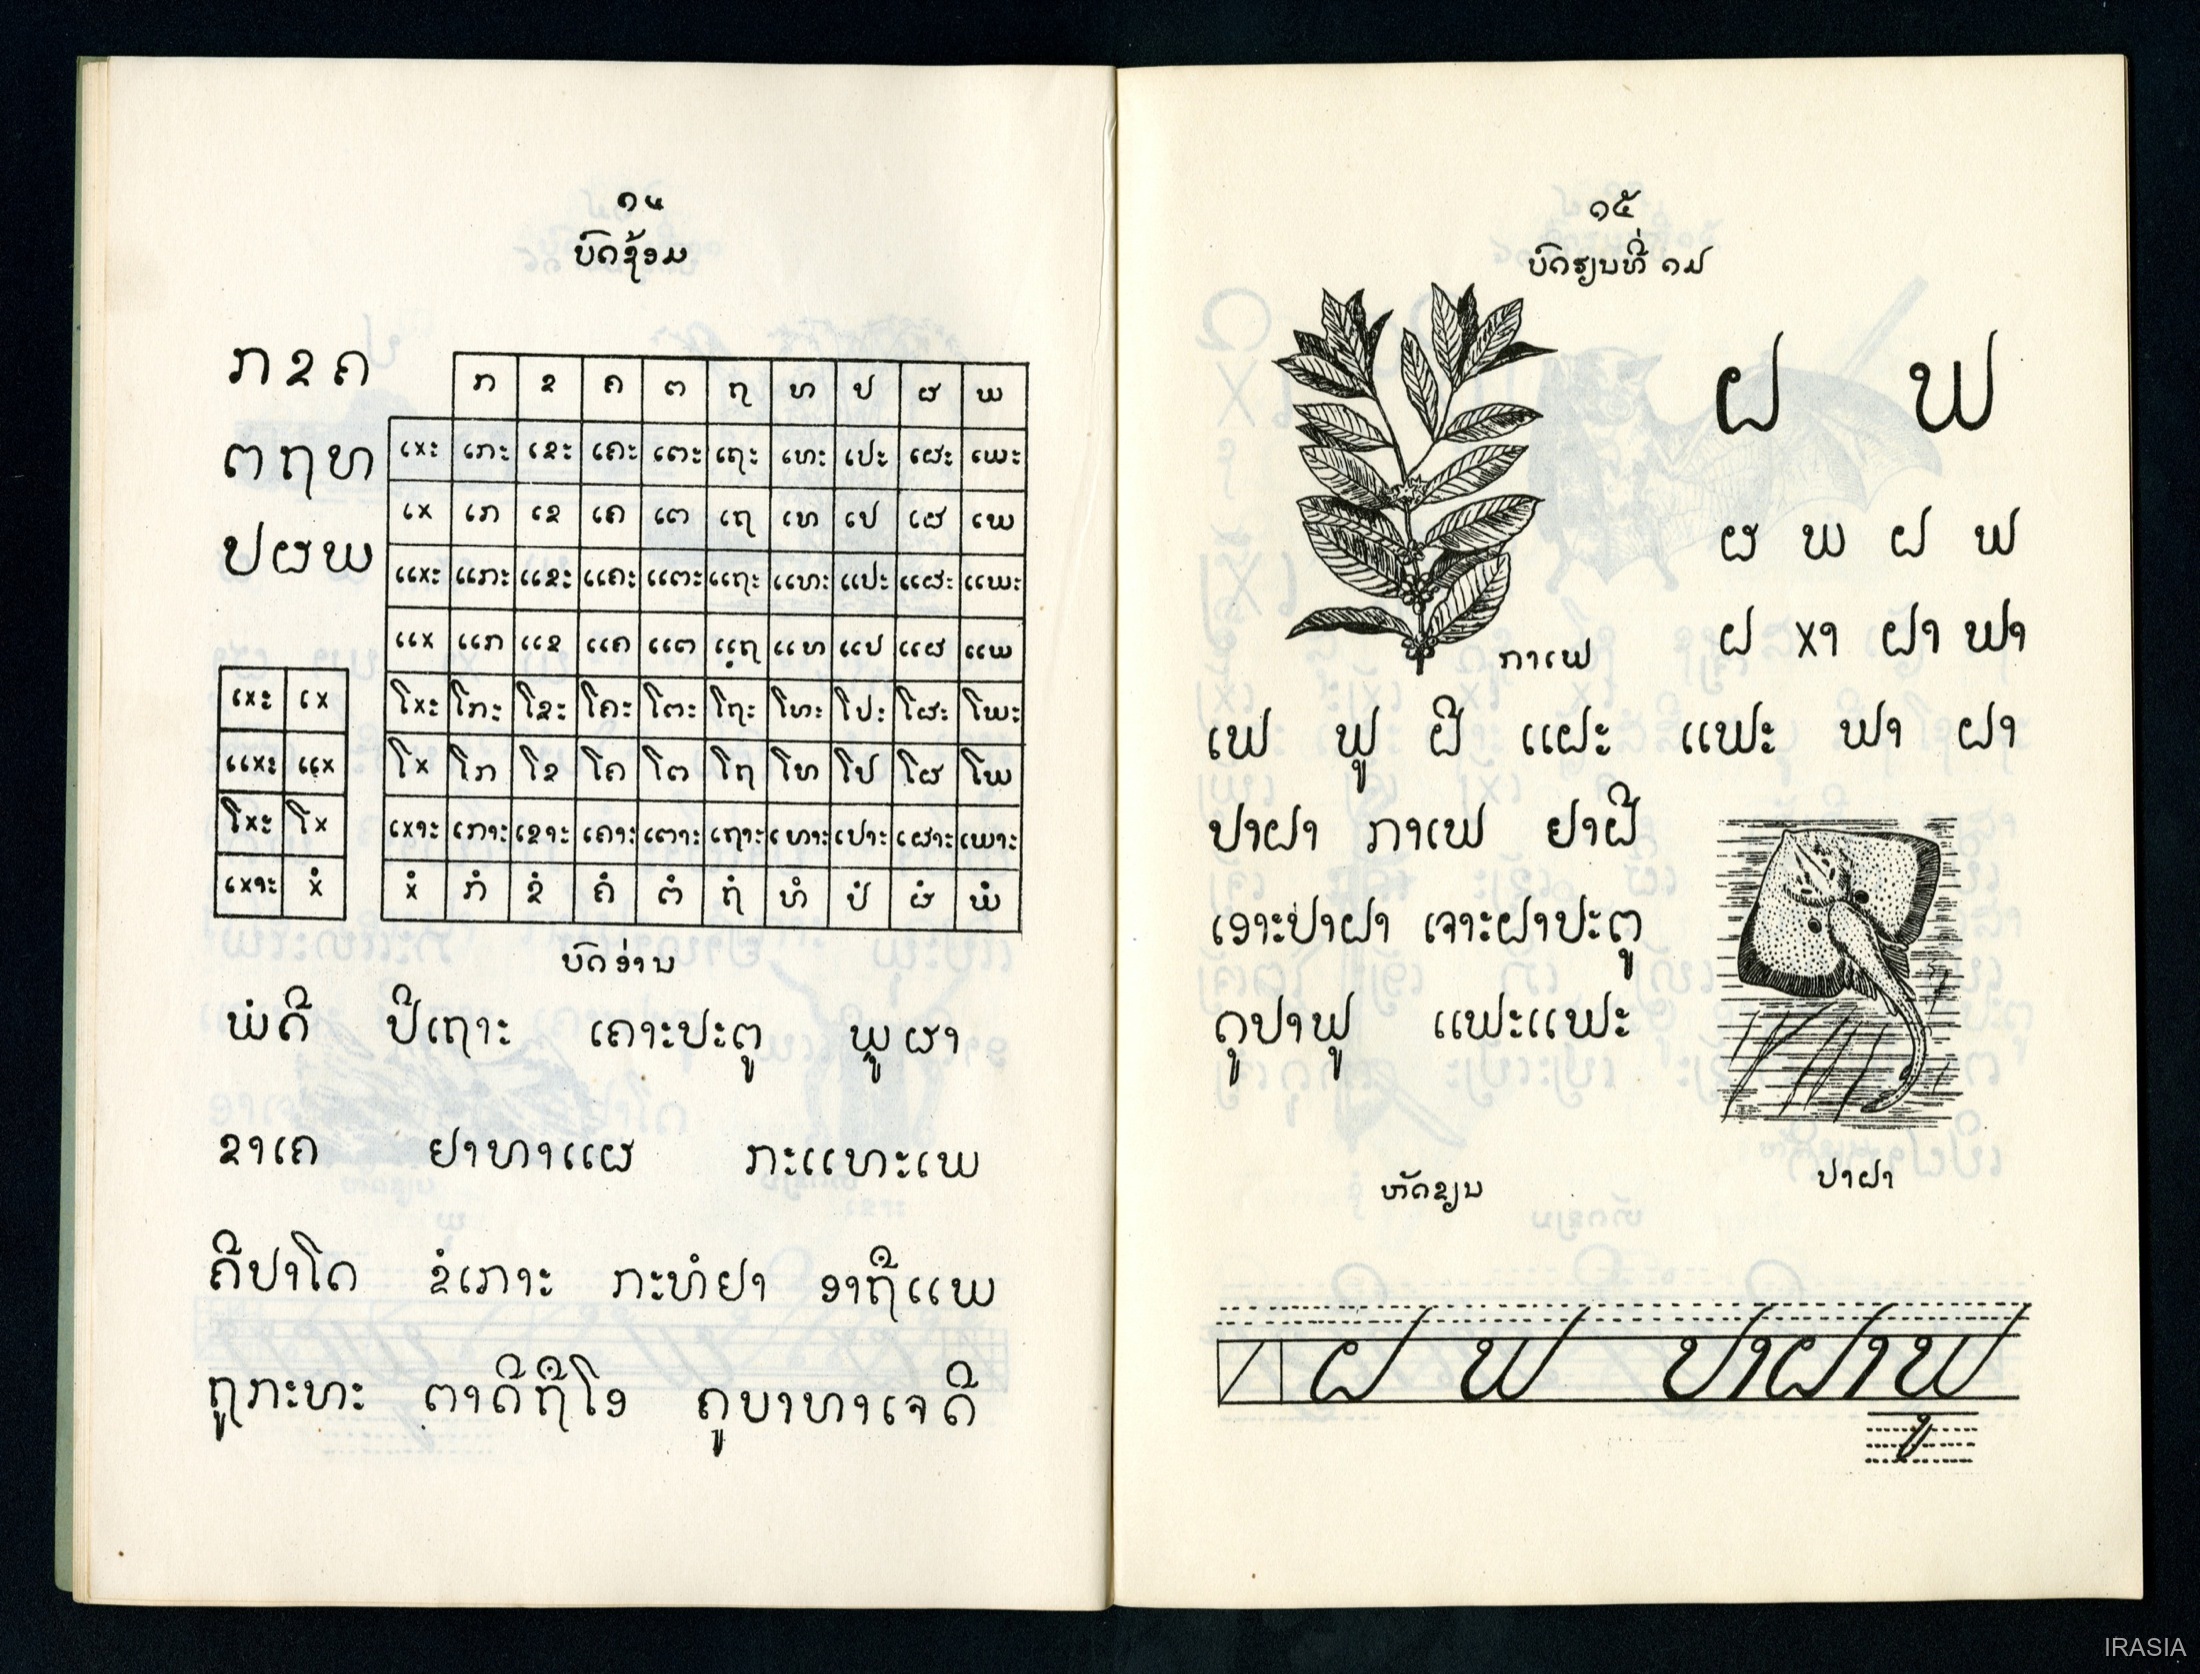 ໑໔
ບົດຊ້ອມ
ກ ຂ ຄ
ຕ ຖ ທ
ປ ຜ ພ
ກ ຂ ຄ ຕ ຖ ທ ປ ຜ ພ
ເxະ ເກະ ເຂະ ເຄະ ເຕະ ເຖະ ເທະ ເປະ ເຜະ ເພະ
ເx ເກ ເຂ ເຄ ເຕ ເຖ ເທ ເປ ເຜ ເພ
ແxະ ແກະ ແຂະ ແຄະ ແຕະ ແຖະ ແທະ ແປະ ແຜະ ແພະ
ແx ແກ ແຂ ແຄ ແຕ ແຖ ແທ ແປ ແຜ ແພ
ໂxະ ໂກະ ໂຂະ ໂຄະ ໂຕະ ໂຖະ ໂທະ ໂປະ ໂຜະ ໂພະ
ໂx ໂກ ໂຂ ໂຄ ໂຕ ໂຖ ໂທ ໂປ ໂຜ ໂພ
ເxາະ ເກາະ ເຂາະ ເຄາະ ເຕາະ ເຖາະ ເທາະ ເປາະ ເຜາະ ເພາະ
xໍ ກໍ ຂໍ ຄໍ ຕໍ ຖໍ ທໍ ປໍ ຜໍ ພໍ
ເxະ ເx
ແxະ ແx
ໂxະ ໂx
ເxາະ xໍ
ບົດອ່ານ
ພໍດີ ປີເຖາະ ເຄາະປະຕູ ພູຜາ
ຂາເຄ ຢາທາແຜ ກະແທະເພ
ຄີປາໂດ ຂໍເກາະ ກະທໍຢາ ອາຖືແພ
ຖູກະທະ ຕາດີຖືໂອ ຄູບາທາເຈດີ
໑໕
ບົດຮຽນທີ່
ຝ ຟ
ຜ ພ ຝ ຟ
ຝ xາ ຝາ ຟາ
ກາເຟ
ເຟ ຟູ ຝີ ແຝະ ແຟະ ຟາ ຝາ
ປາຝາ ກາເຟ ຢາຝີ
ເອາະປາຝາ ເຈາະຝາປະຕູ
ດູປາຟູ ແຟະແຟະ
ປາຝາ
ຫັດຂຽນ
ຝ ຟ ປາຝາຟູ
IRASIA